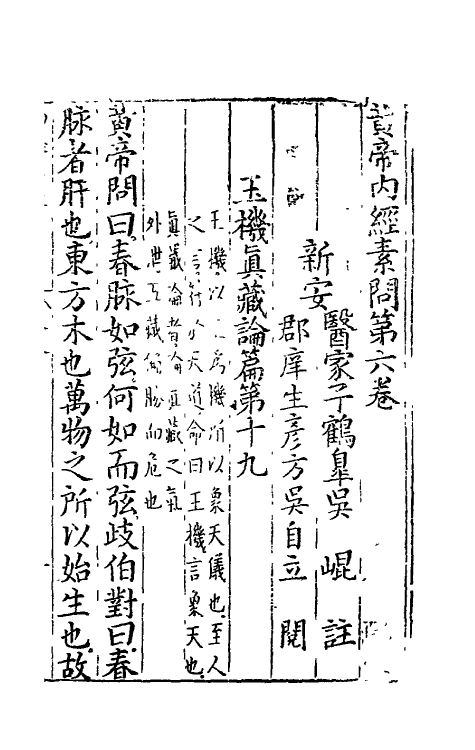 黃帝內經素問第六卷
新安
醫家子鶴皐吳 崐 註
郡庠生彥方吳自立 閱
玉機眞藏論篇第十九
玉機以 爲機所以象天儀也至人
之言 天道命曰玉機言象天也
眞藏論者論眞藏之氣
外泄五藏 勝而危也
黃帝問曰春脉如弦何如而弦歧伯對曰春
脉者肝也東方木也萬物之所以始生也故